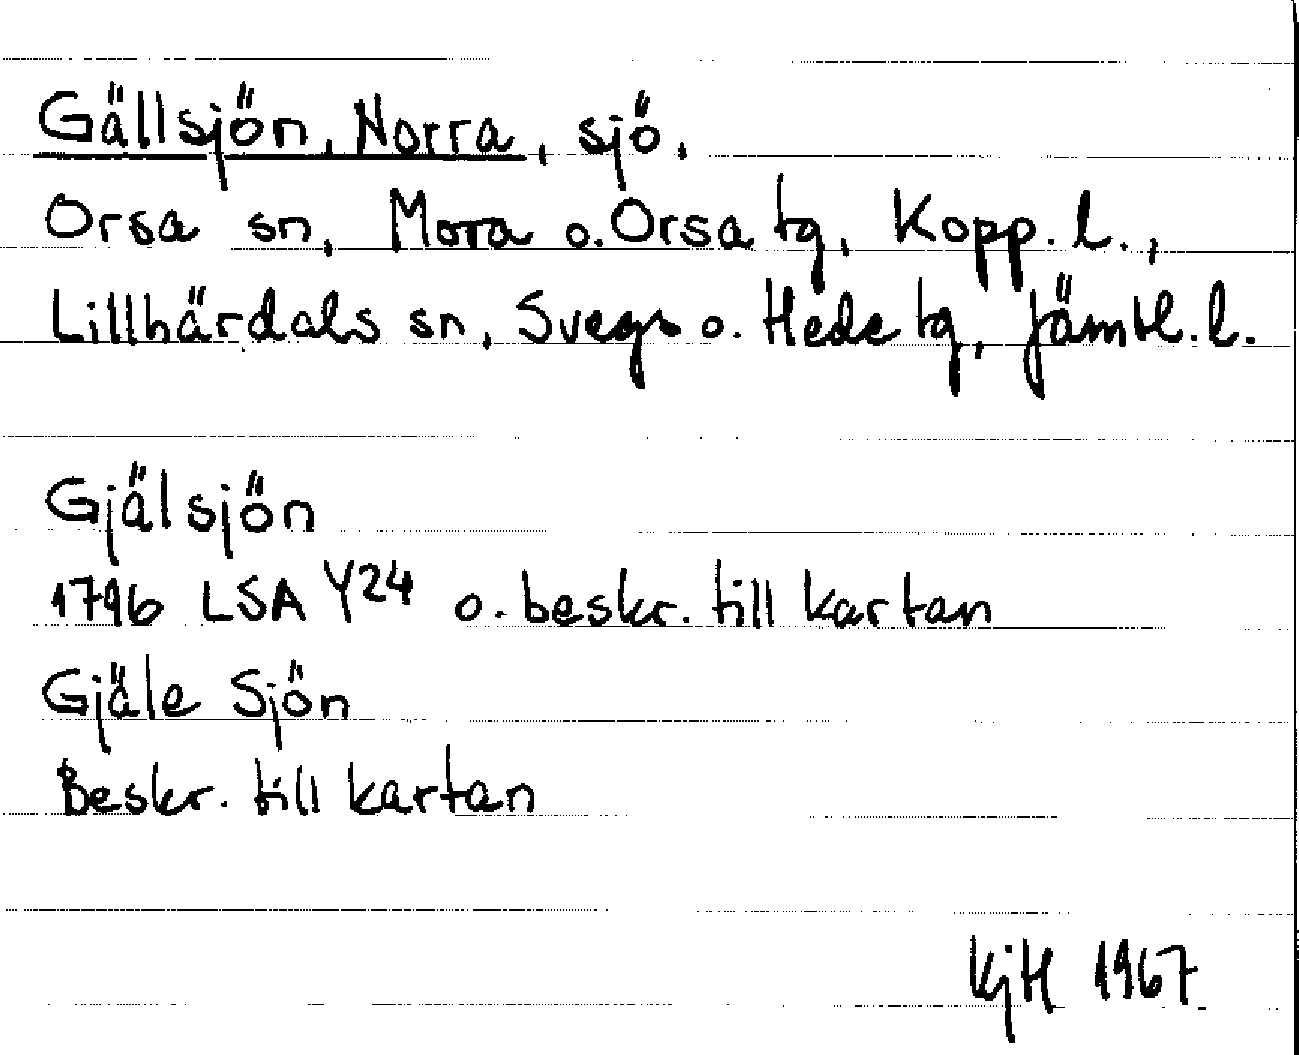 Gällsjön, Norra, sjö.
Orsa sn, Mora o. Orsa tg, Kopp. l.,
Lillhärdals sn, Svegs o. Hede tg, Jämtl. l.
Gjälsjön
1796 LSA Y24 o. beskr. till kartan
Gjäle Sjön
Beskr. till kartan
KjH 1967